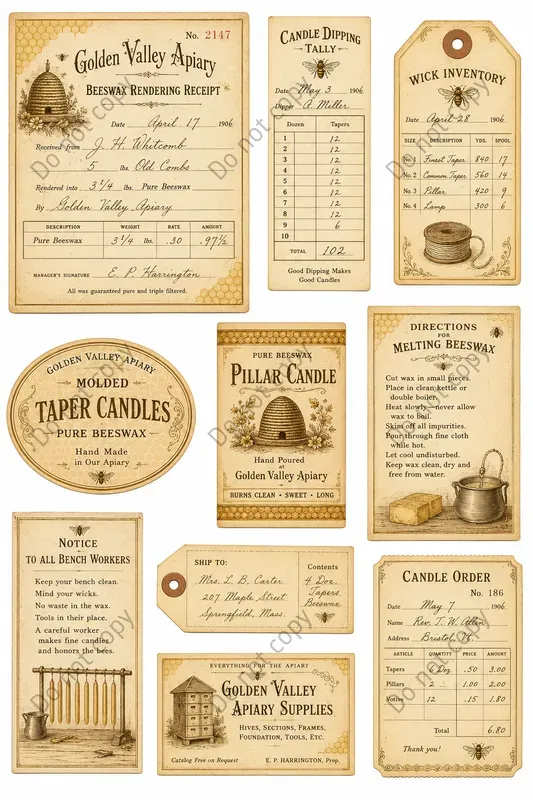 No. 2147
Golden Valley Apiary
BEESWAX RENDERING RECEIPT
Date April 17 1906
Received from J. H. Whitcomb
5 lbs. Old Combs
Rendered into 3 1/4 lbs. Pure Beeswax
By Golden Valley Apiary
DESCRIPTION WEIGHT RATE AMOUNT
Pure Beeswax 3 1/4 lbs. .30 .97½
MANAGER'S SIGNATURE E. P. Harrington
All wax guaranteed pure and triple filtered.
CANDLE DIPPING
TALLY
Date May 3 1906
Dipper A. Miller
Dozen Tapers
1 12
2 12
3 12
4 12
5 12
6 12
7 12
8 12
9 6
10
TOTAL 102
Good Dipping Makes
Good Candles
WICK INVENTORY
Date April 28 1906
SIZE DESCRIPTION YDS. SPOOL
No. 1 Finest Taper 840 17
No. 2 Common Taper 560 14
No. 3 Pillar 420 9
No. 4 Lamp 300 6
GOLDEN VALLEY APIARY
MOLDED
TAPER CANDLES
PURE BEESWAX
Hand Made
in Our Apiary
PURE BEESWAX
PILLAR CANDLE
Hand Poured
at
Golden Valley Apiary
BURNS CLEAN • SWEET • LONG
DIRECTIONS
FOR
MELTING BEESWAX
Cut wax in small pieces.
Place in clean kettle or
double boiler.
Heat slowly—never allow
wax to boil.
Skim off all impurities.
Pour through fine cloth
while hot.
Let cool undisturbed.
Keep wax clean, dry and
free from water.
NOTICE
TO ALL BENCH WORKERS
Keep your bench clean.
Mind your wicks.
No waste in the wax.
Tools in their place.
A careful worker
makes fine candles
and honors the bees.
SHIP TO:
Mrs. L. B. Carter
207 Maple Street
Springfield, Mass.
Contents
4 Doz.
Tapers
Beeswax
EVERYTHING FOR THE APIARY
GOLDEN VALLEY
APIARY SUPPLIES
HIVES, SECTIONS, FRAMES,
FOUNDATION, TOOLS, ETC.
Catalog Free on Request E. P. HARRINGTON, Prop.
CANDLE ORDER
No. 186
Date May 7 1906
Name Rev. T. W. Allen
Address Bristol,
ARTICLE QUANTITY PRICE AMOUNT
Tapers Doz .50 3.00
Pillars 2 1.00 2.00
Votive 12 .15 1.80
Total 6.80
Thank you!
Do not copy
Do not copy
Do not copy
Do not copy
Do not copy
Do not copy
Do not copy
Do not copy
Do not copy